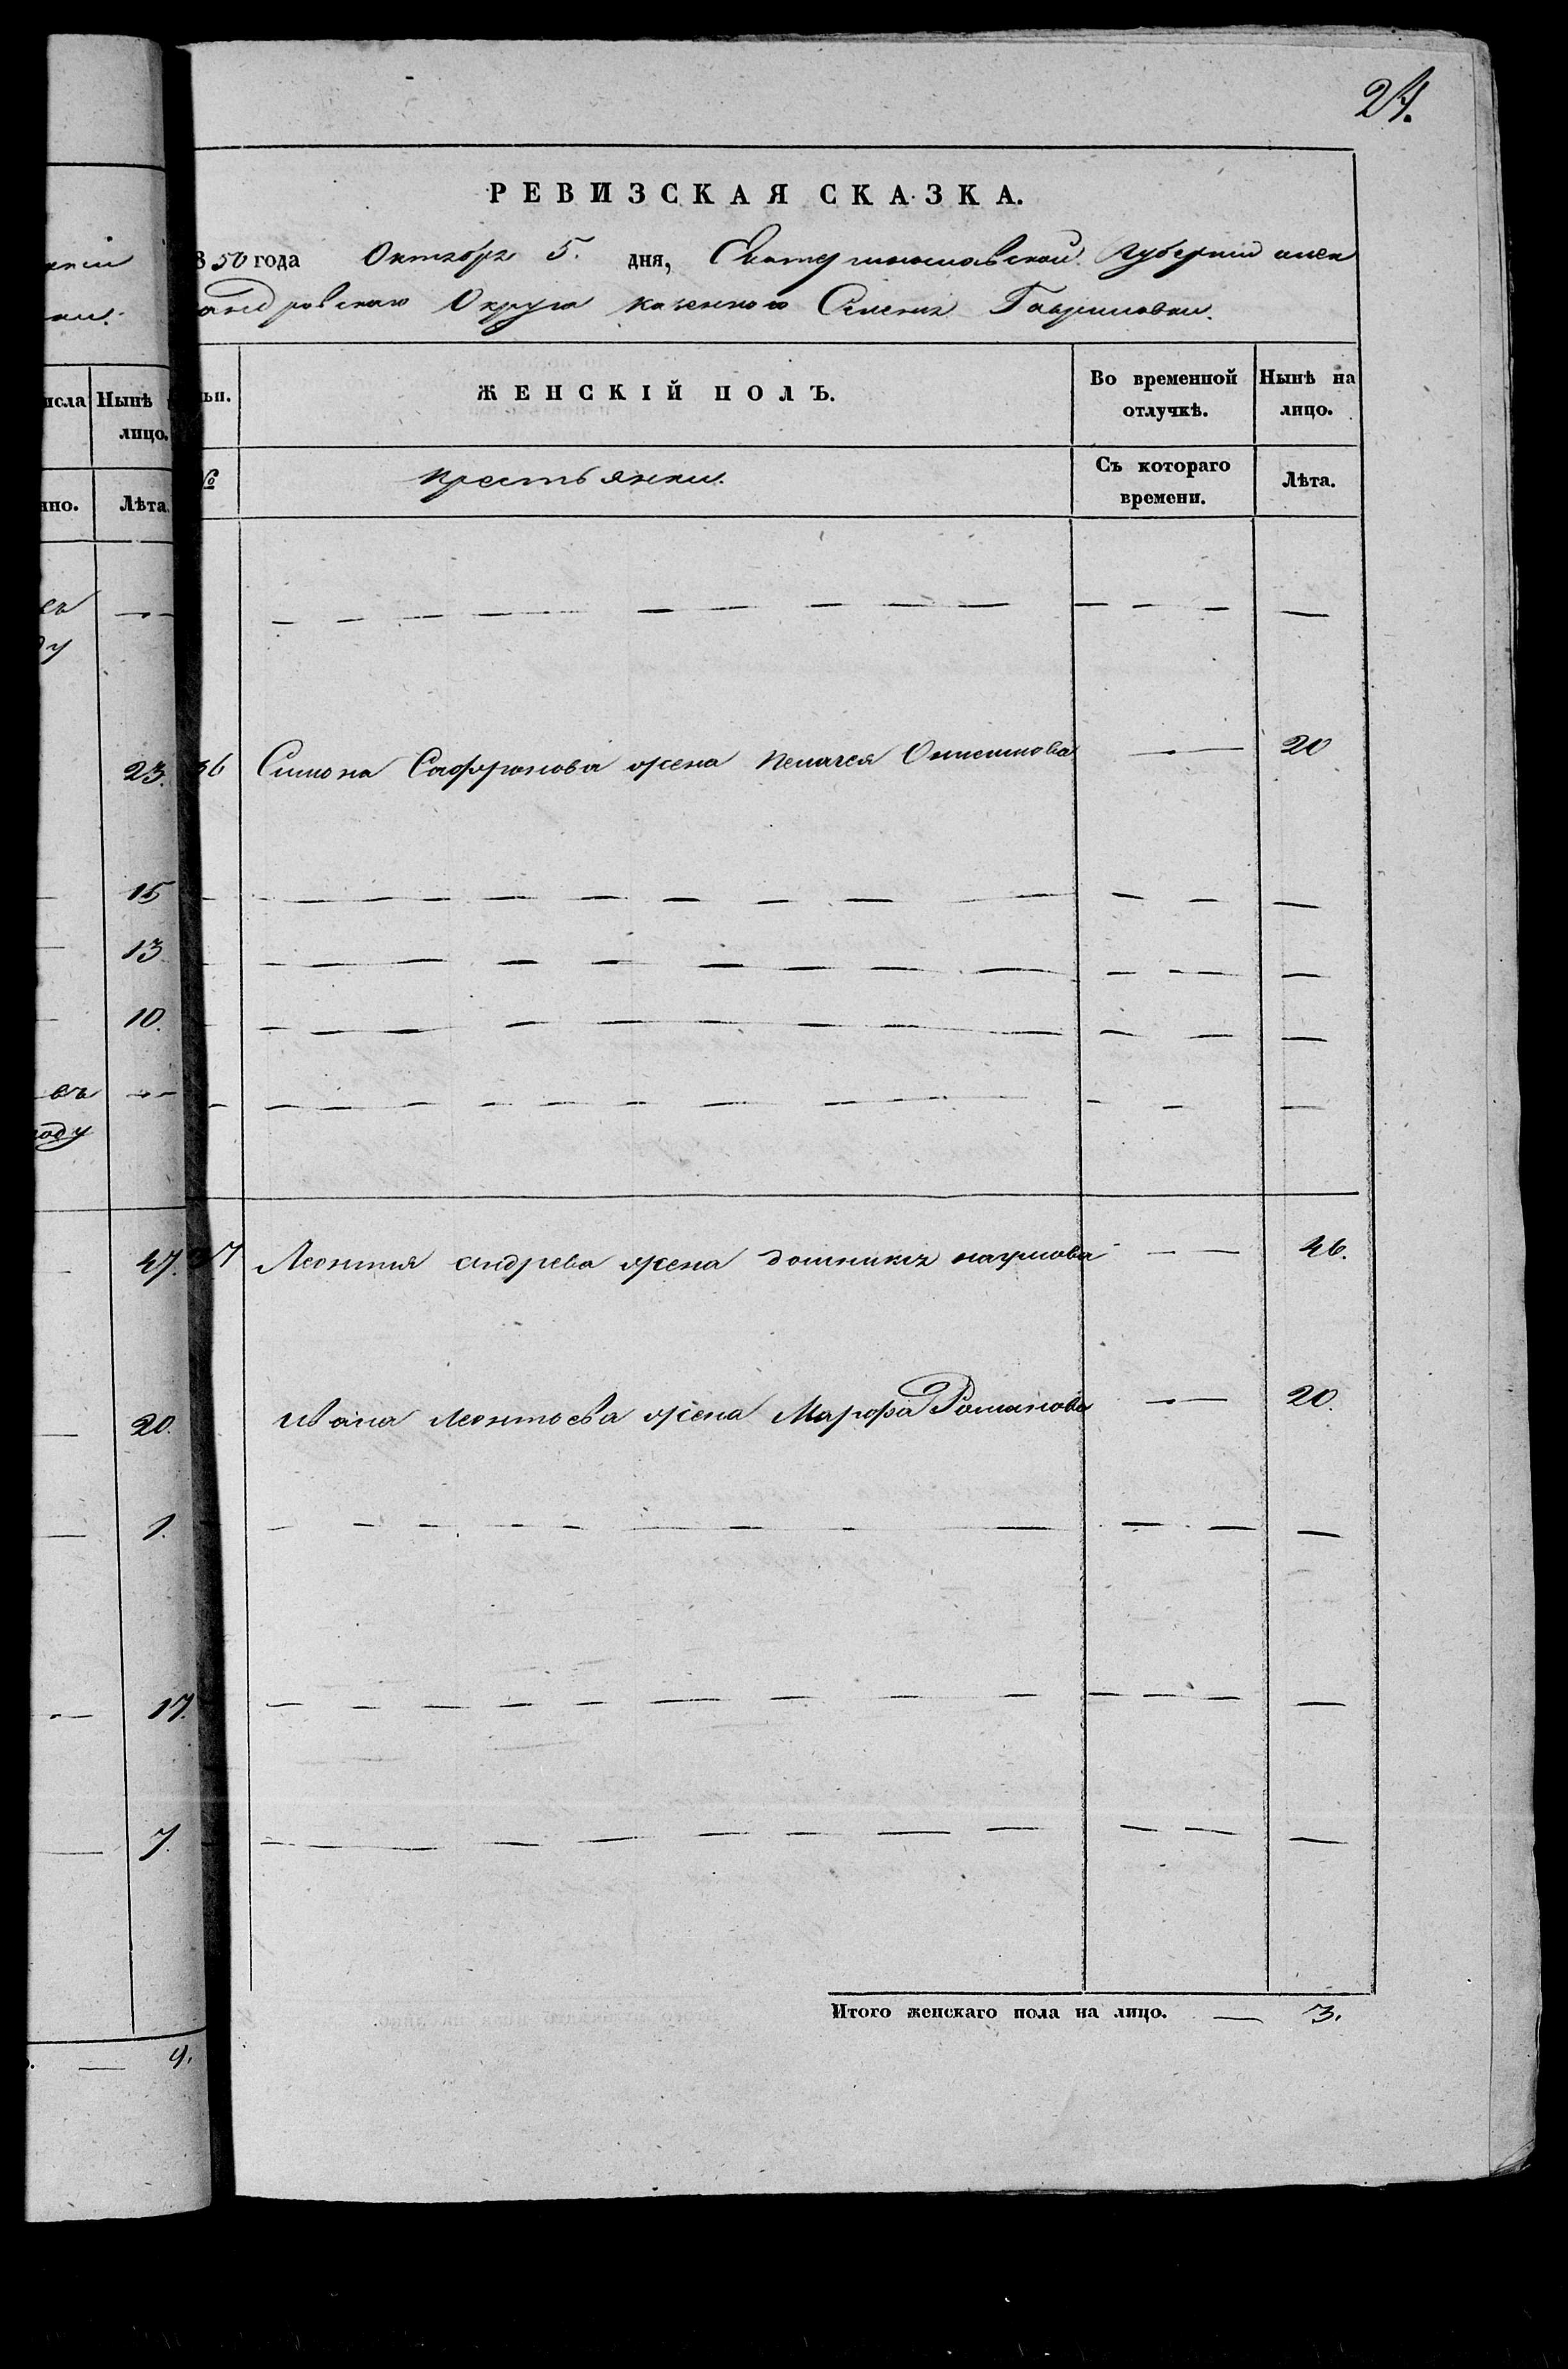 24.
РЕВИЗСКАЯ СКАЗКА.
850 года Октября 5. дня, Екатеринославской Губерніи алек
андровскаго Округа казенного Селенія Гавриловки.
исла Нынѣ
лицо.
нно. Лѣта.
ьи. ЖЕНСКІЙ ПОЛЪ. Во временной отлучкѣ. Нынѣ на лицо.
№ крестьянки. Съ котораго времени. Лѣта.
23. 36 Симона Сафронова жена Пелагея 20
15
13
10.
въ
году
47. 37 Леонтия андрева жена домникия наумова 46.
20. ивана леонтьева жена Марфа Романова 20.
1.
17.
7.
Итого женскаго пола на лицо. — 3.
9.